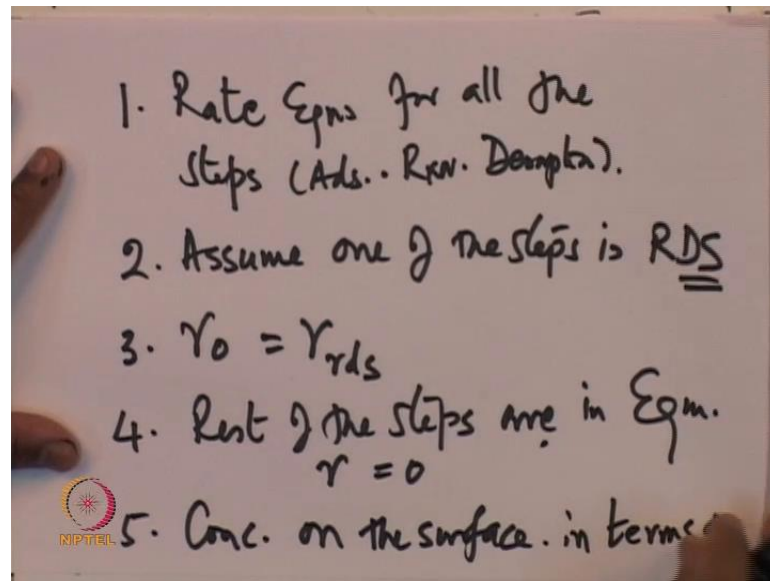 1. Rate Eqns for all the
steps (Ads.. Rxn. Desorption).
2. Assume one of the steps is RDS
3. r₀ = r_rds
4. Rest of the steps are in Eqm.
r = 0
5. Conc. on the surface. in terms
NPTEL